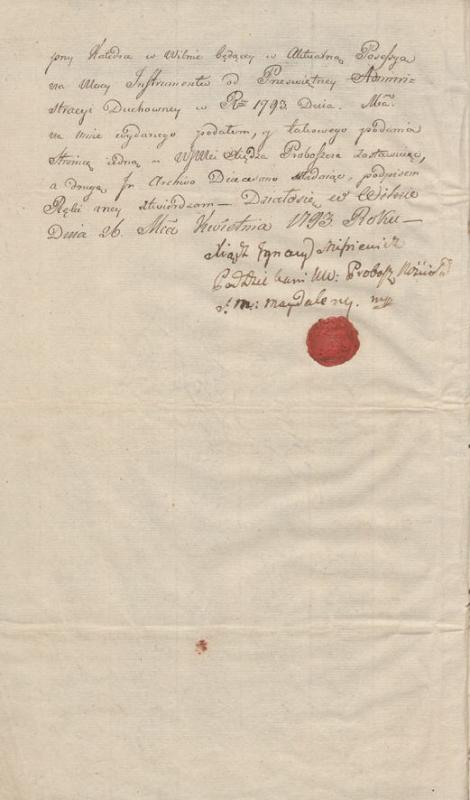 przy Katedrze w Wilnie będący w Aktualną Possesya
na Mocy Instrumentu od Prześwietney Admini=
stracyi Duchowney w Rku 1793 Dnia. Mca.
na mie wydanego podałem, y takowego podania
Stronicę iedną u Xiędza Proboszcza zostawuiąc,
a drugą In Archivo Diæcesano składaiąc, podpisem
Ręki mey stwierdzam — Działosię w Wilnie
Dnia 26. Mca Kwietnia 1793 Roku —
Xiądz Ignacy
Podziekani W: Probosz Kościoła
S. M: Magdaleny. mp